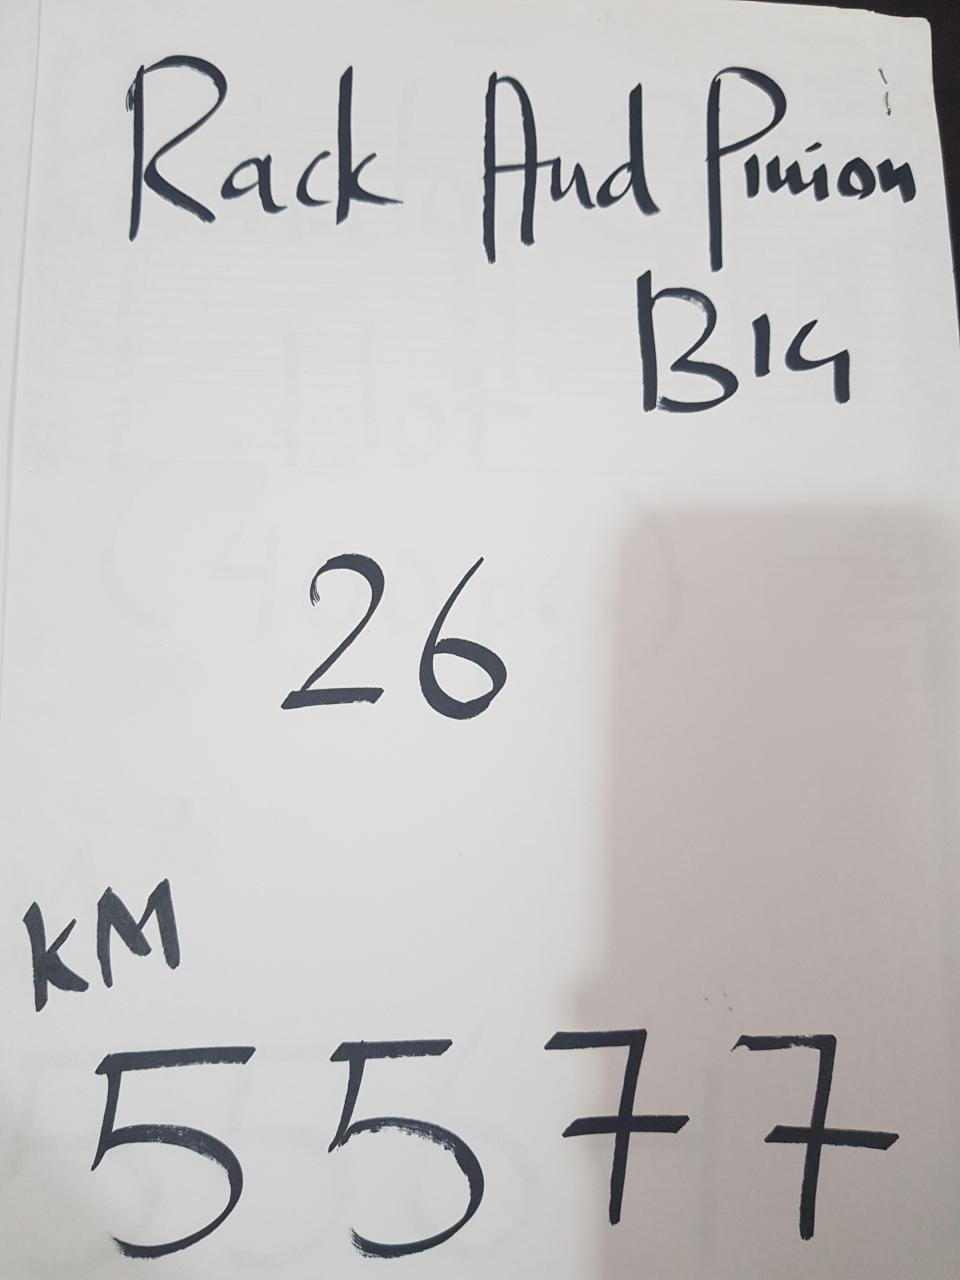 Rack And Pinion
BIG
26
KM
5577